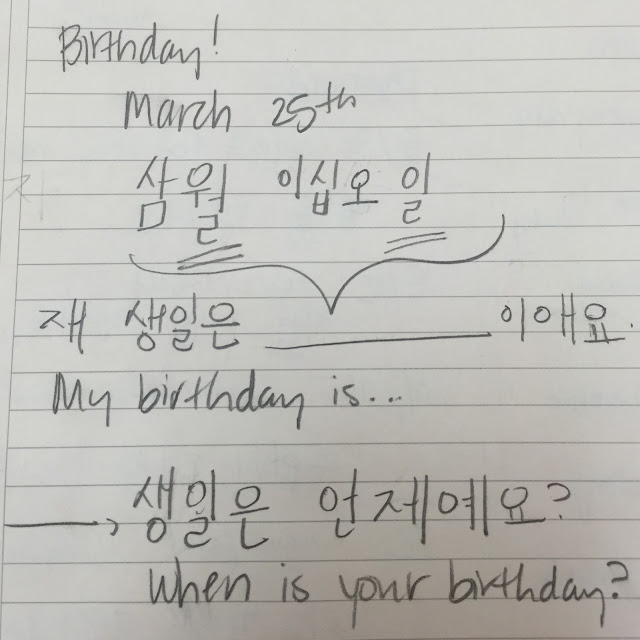 Birthday!
March 25th
삼월 이십오 일
재 생일은 ________ 이애요.
My birthday is...
→ 생일은 언제예요?
When is your birthday?